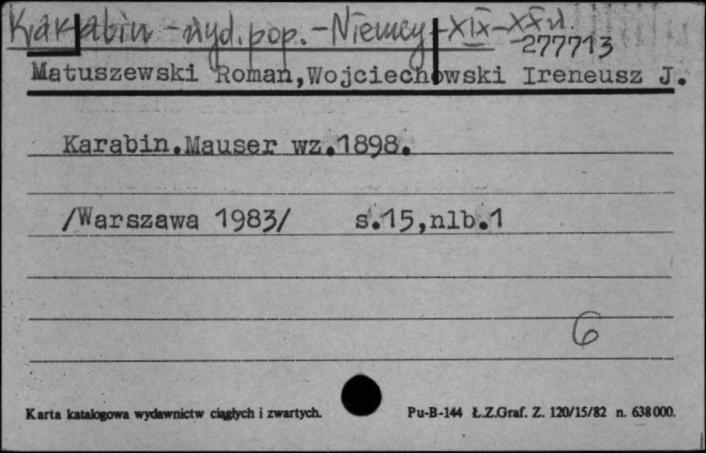 Karabin - wyd. pop. - Niemcy - XIX - XX w.
277713
Matuszewski Roman,Wojciechowski Ireneusz J.
Karabin.Mauser wz.1898.
/Warszawa 1983/ s.15,nlb.1
6
Karta katalogowa wydawnictw ciągłych i zwartych. Pu-B-144 Ł.Z.Graf. Z. 120/15/82 n. 638000.